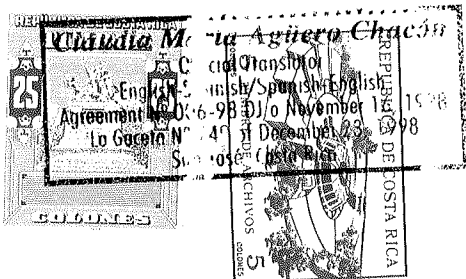 REPUBLICA DE COSTA RICA
Claudia Ma ia Agüero Chacón
Official Translator
English-Spanish/Spanish-English
Agreement Nº 0 6-98 DJ o November 1 , 1998
La Gaceta Nº 249 of December 23, 1998
San José, Costa Rica
25
COLONES
REPUBLICA DE COSTA RICA
DE ARCHIVOS
5
COLONES